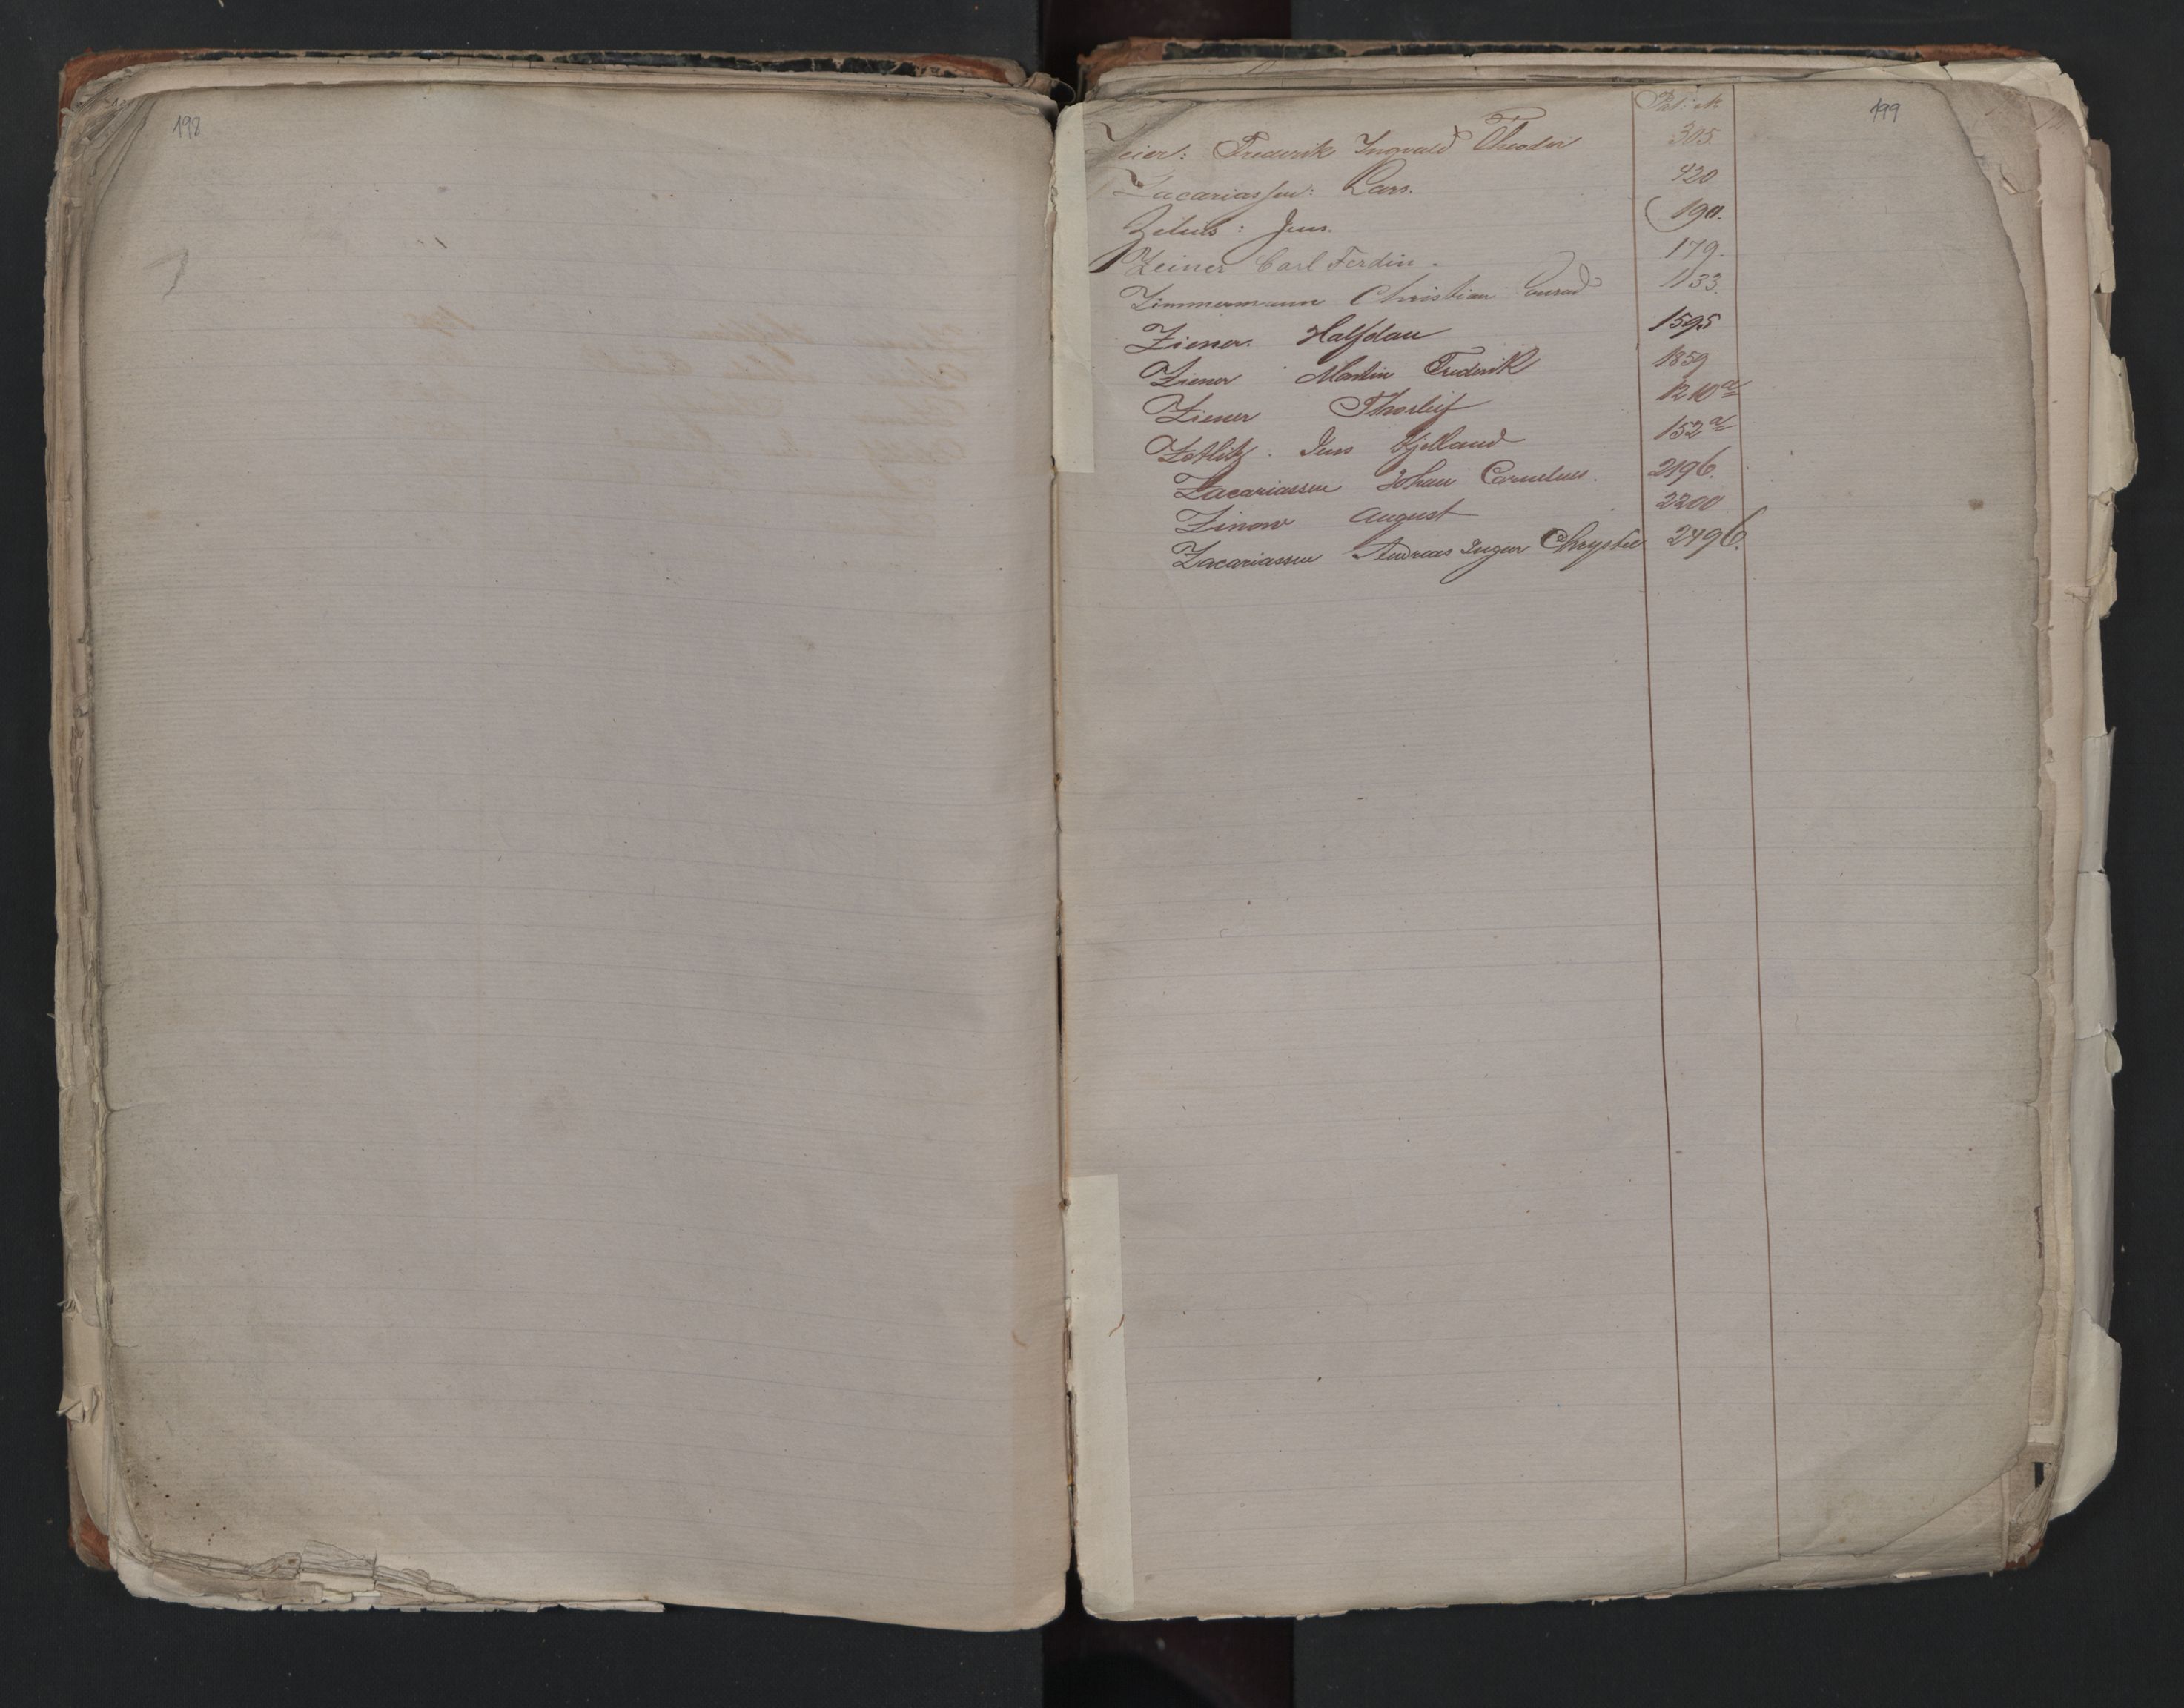 198
199
Zeier: Frederik Ingvald Theodor 305.
Zacariassen: Lars. 420
Zetlis: Jens. 190.
Zeiner Carl Ferdin. 179.
Zimmermann Christian Conrad 1133.
Ziener. Halfdan 1595
Ziener Martin Frederik 1859
Ziener Thorleif 1210a
Zetlitz. Jens Kjelland 152a
Zacariassen Johan Cornelius. 2196.
Zinow August 2200
Zacariassen Andreas Inger Chrystie 2496.